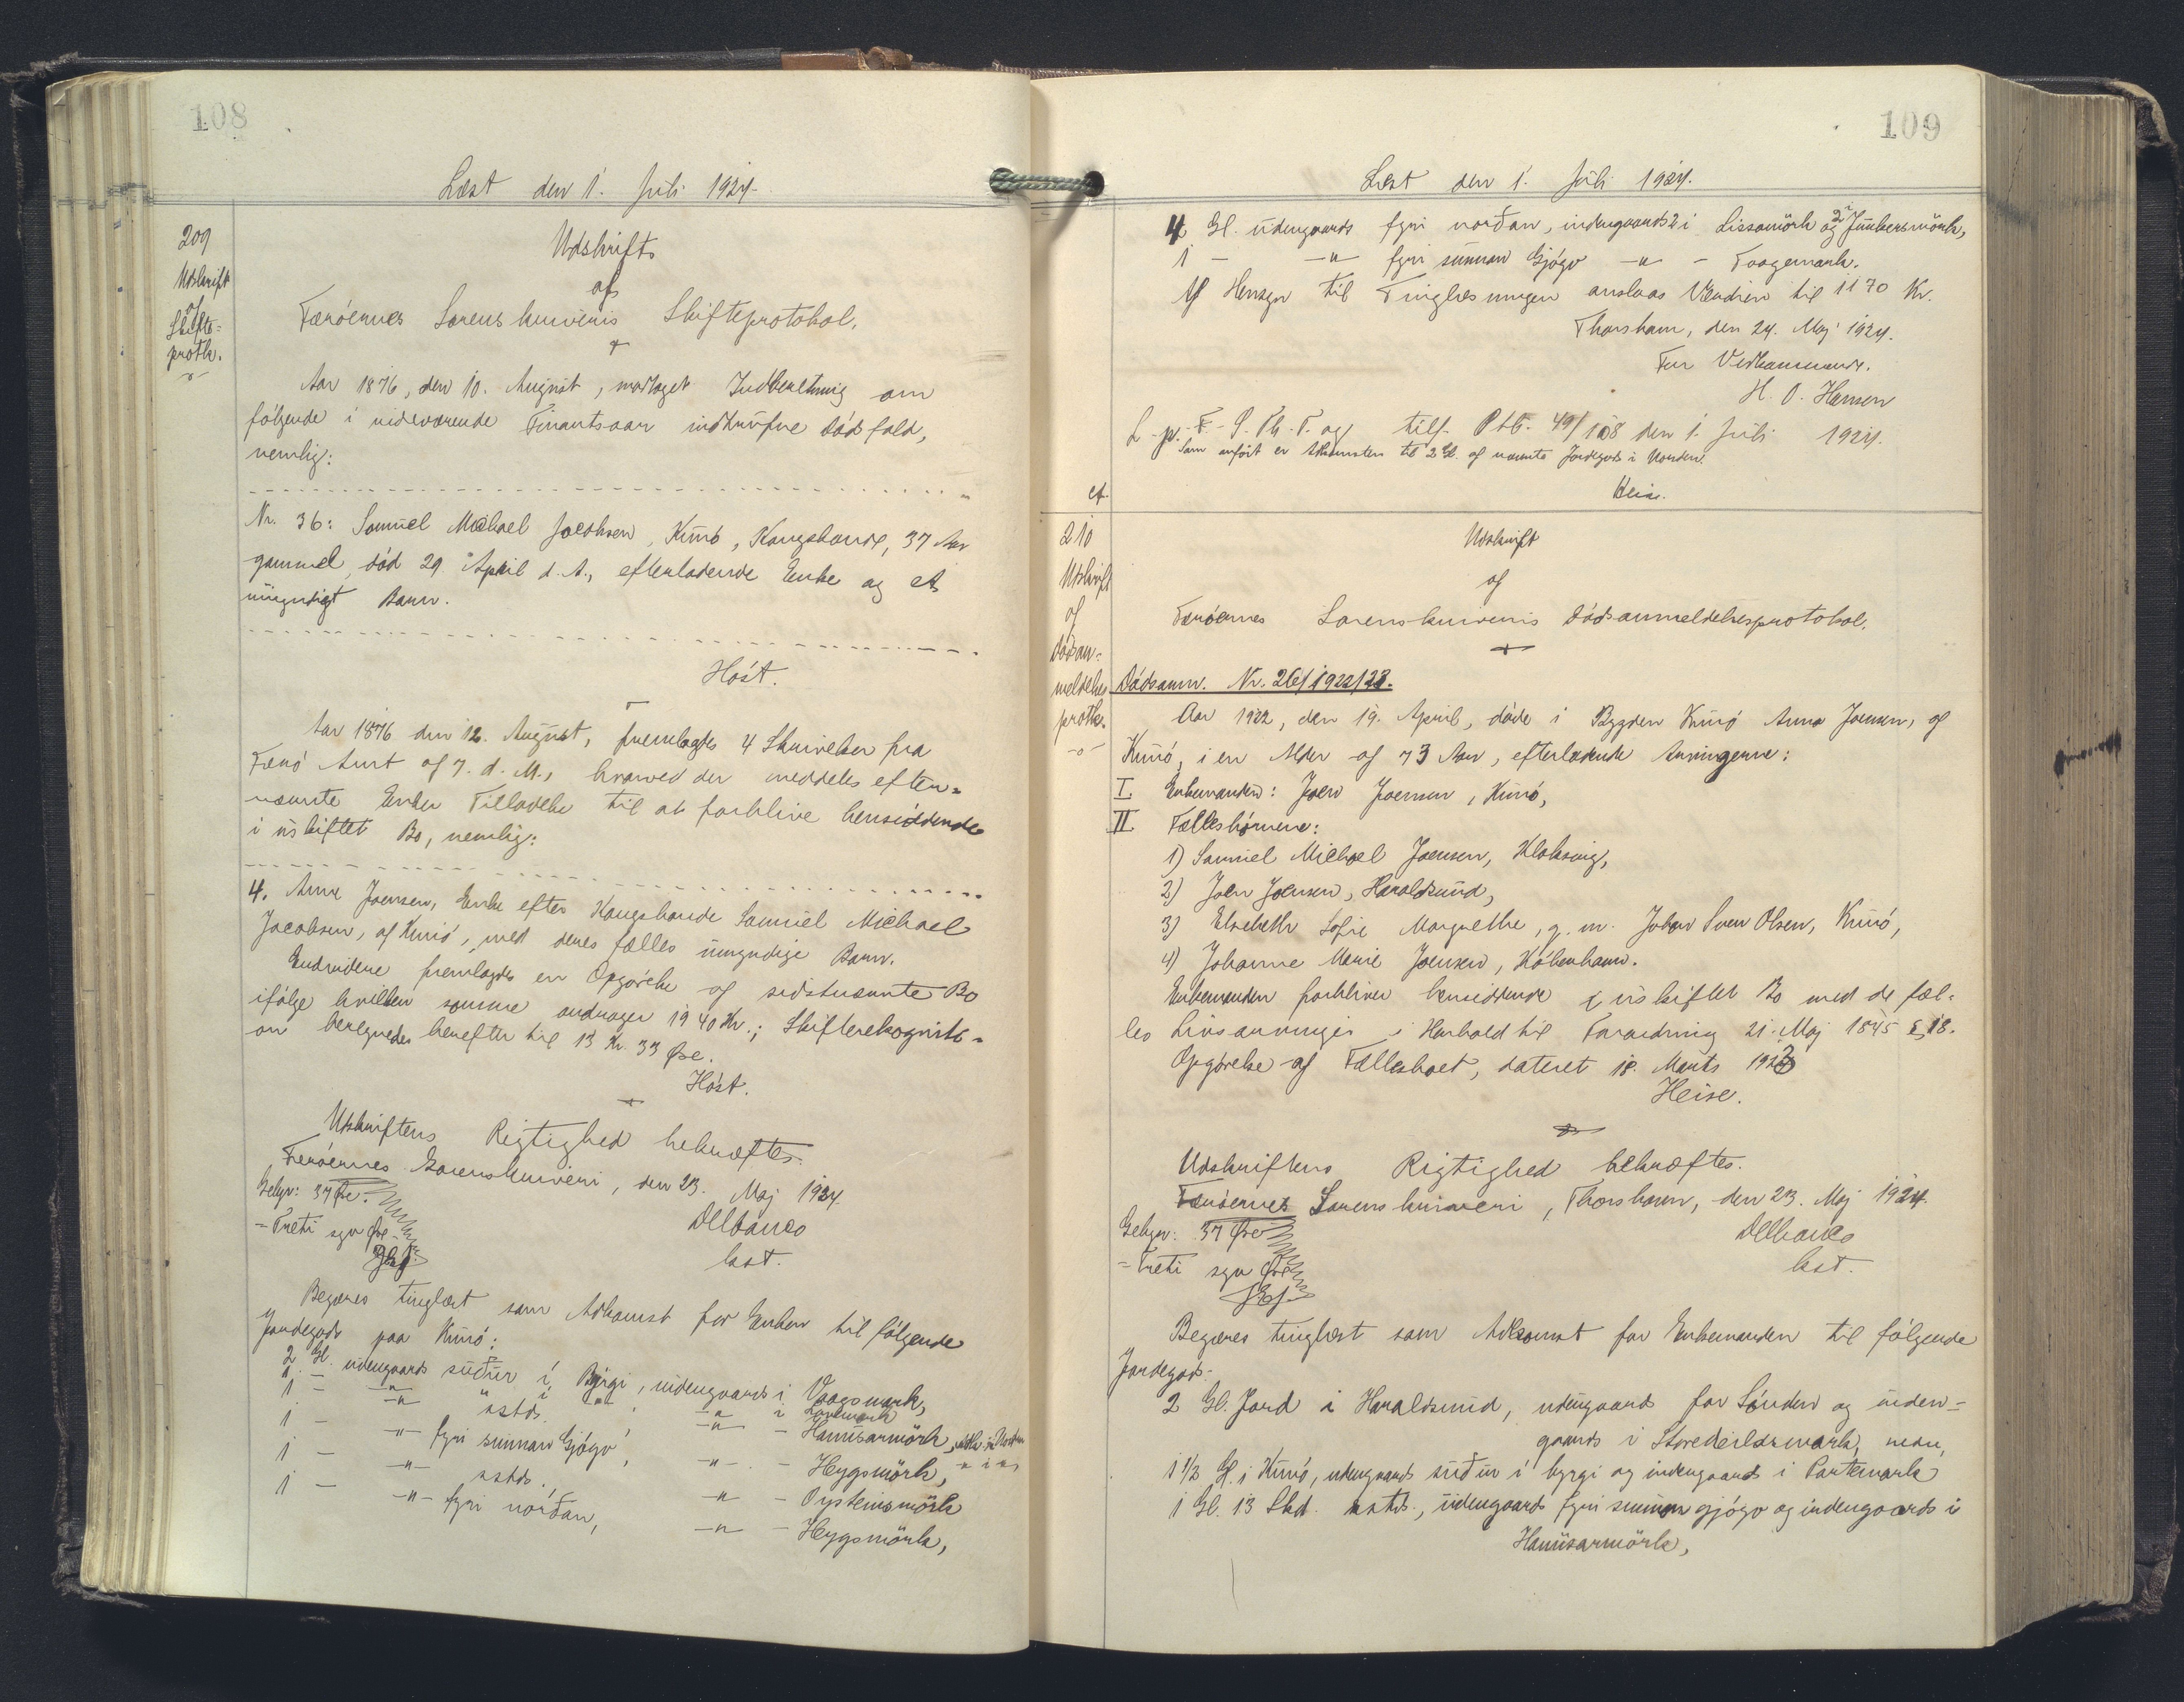 108
Læst den 1. Juli 1924.
209
Udskrift
af
Skifte-
protk.
Udskrift
af
Færöernes Sorenskriveris Skifteprotokol.
Aar 1876, den 10. August, modtaget Indberetning om
følgende i nærværende Finantsaar indtrufne Dödsfald,
nemlig:
Nr. 36: Samuel Michael Jacobsen, Kunö, Kongsbonde, 37 Aar
gammel, död 29. April d. A., efterladende Enke og et
umyndigt Barn.
Höst.
Aar 1876 den 12. August, fremlagdes 4 Skrivelser fra
Færö Amt af 7. d. M., hvorved der meddeles efter-
nævnte Enker Tilladelse til at forblive hensiddende
i uskiftet Bo, nemlig:
4. Anne Joensen, Enke efter Kongsbonde Samuel Michael
Jacobsen, af Kunö, med deres fælles umyndige Barn.
Endvidere fremlagdes en Opgörelse af sidstnævnte Bo
ifölge hvilken samme andrager 1940 Kr.; Skifterekogniti-
on beregnedes herefter til 13 Kr. 33 Øre.
Höst.
Udskriftens Rigtighed bekræftes.
Færöernes Sorenskriveri, den 23. Maj 1924.
Gebyr: 37 Øre.
Delbanco
= Treti syv Øre
kst.
Begæres tinglæst som Adkomst for Enken til fölgende
Jordegods paa Kunö:
2 Gl. udengaards suður í Býrgi, indengaards i Vaagsmark,
1 - -"- astds. -"- i
1 - -"- fyri sunnan Gjógv, -"- - Hanusarmörk,
1 - -"- astds., -"- - Heygsmörk,
1 - -"- fyri norðan, -"- - Oysteinsmörk
-"- - Heygsmörk,
109
Læst den 1. Juli 1924.
4 Gl. udengaards fyri norðan, indengaards 2 i Lissamörk og 2 i Junkersmörk,
1 - -"- fyri sunnan Gjógv -"- - Toogemark.
Af Hensyn til Tinglæsningen anslaas Værdien til 1170 Kr.
Thorshavn, den 24. Maj 1924.
For Vedkommende.
H. O. Hansen
L. p. F. S. Th. T. og tilf. Ptb. 49/108 den 1. Juli 1924.
Som anfört er Adkomsten til 2 Gl. af nævnte Jordegods i Norden.
Heise.
cf.
210
Udskrift
af
Dödsan-
meldelses
protk.
Udskrift
af
Færöernes Sorenskriveris Dödsanmeldelsesprotokol.
Dödsanm. Nr. 26/1922/23.
Aar 1922, den 19. April, döde i Bygden Kunö Anna Joensen, af
Kunö, i en Alder af 73 Aar, efterladende Arvingerne:
I Enkemanden: Joen Joensen, Kunö,
II Fællesbörnene:
1) Samuel Michael Joensen, Klaksvig,
2) Joen Joensen, Haraldsund,
3) Elsebeth Sofie Margrethe, g. m. Johan Sven Olsen, Kunö,
4) Johanne Marie Joensen, Köbenhavn.
Enkemanden forbliver hensiddende i uskiftet Bo med de fæl-
les Livsarvinger i Henhold til Forordning 21. Maj 1845 § 18.
Opgörelse af Fællesboet, dateret 18. Marts 1923
Heise.
Udskriftens Rigtighed bekræftes.
Færöernes Sorenskriveri, Thorshavn, den 23. Maj 1924.
Gebyr: 37 Øre
Delbanco
= Treti syv Øre
kst.
Begæres tinglæst som Adkomst for Enkemanden til fölgende
Jordegods:
2 Gl. Jord i Haraldsund, udengaards for Sönden og inden-
gaards i Storedeildsmark, nedn,
1 1/2 Gl. i Kunö, udengaards suður í byrgi og indengaards i Partemark
1 Gl. 13 Skd. astds., udengaards fyri sunnan gjógv og indengaards i
Hanusarmörk,